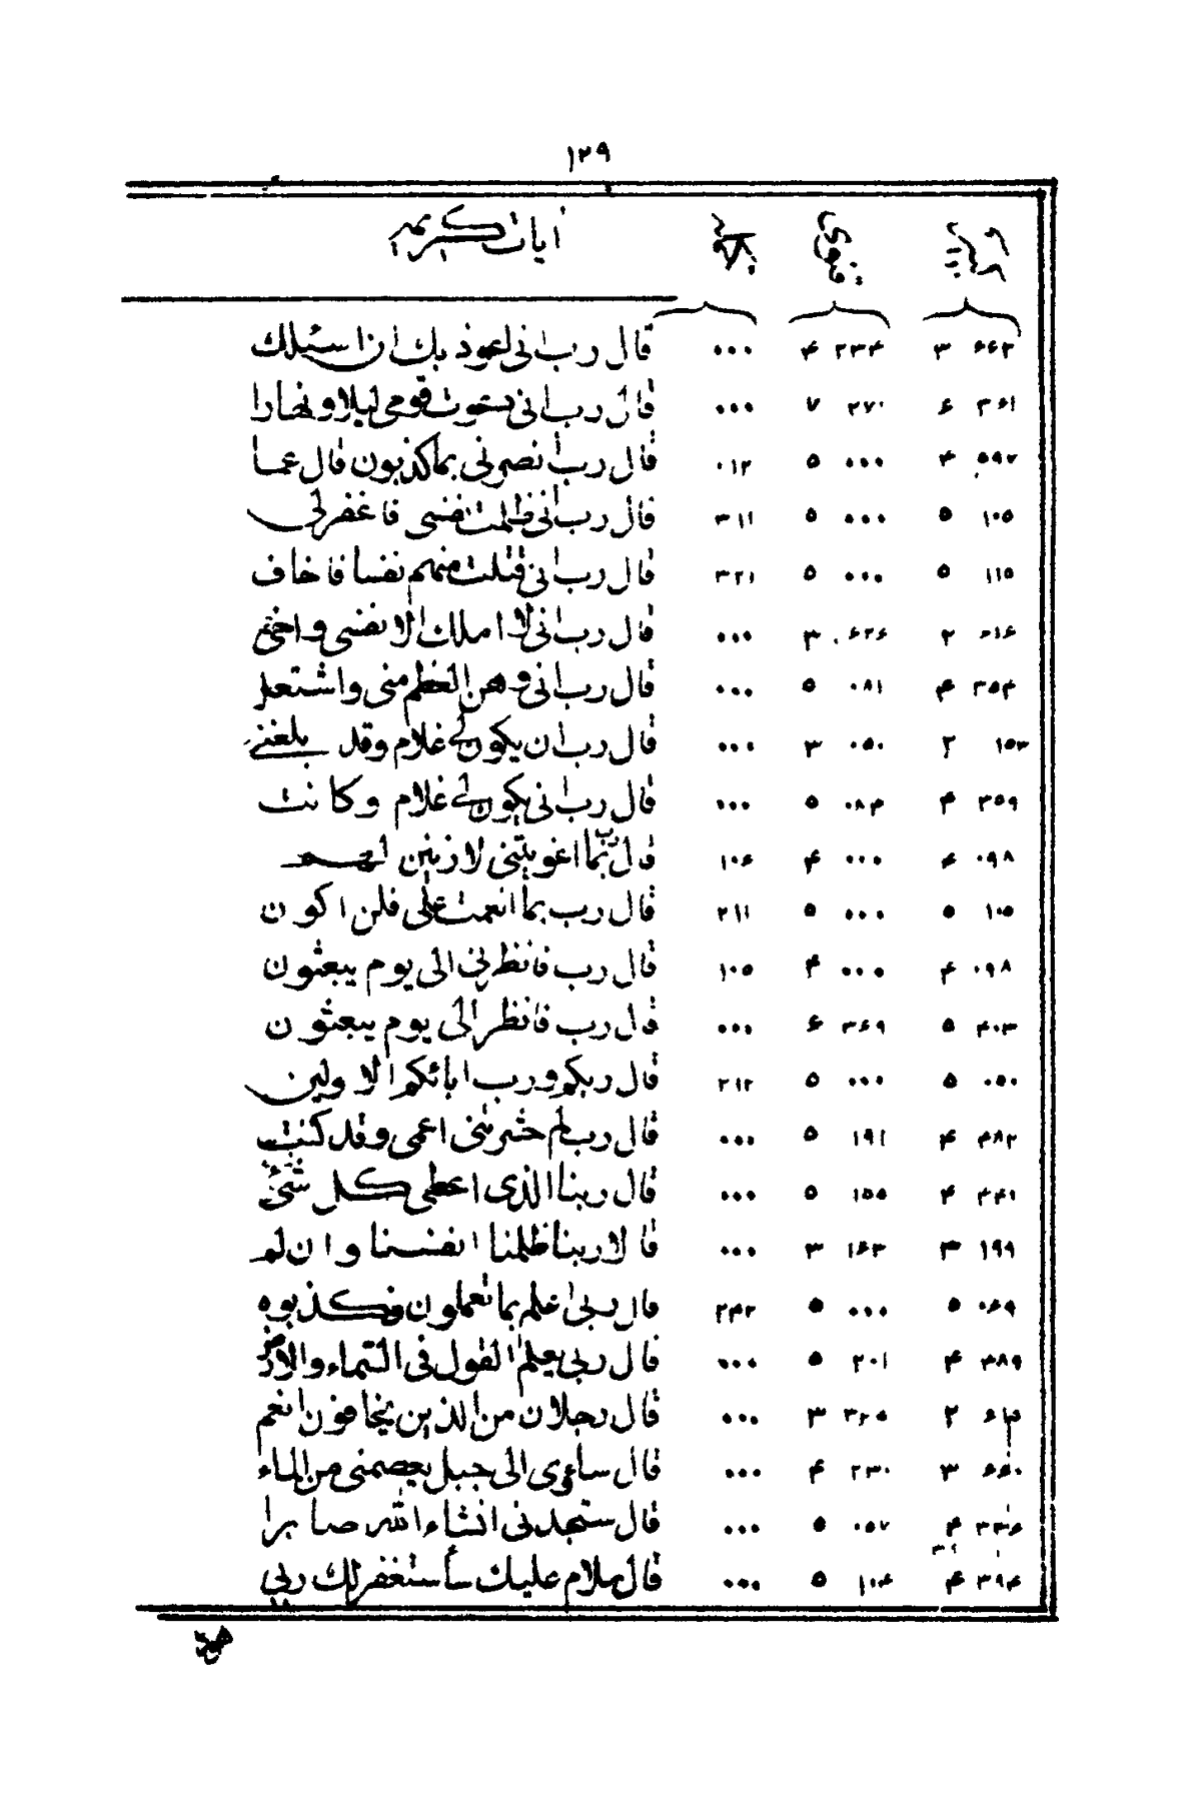 ١٢٩
آيات كريمه
٦٤٢ ٣ ٢٣٤ ۴ ٠٠٠ قال رب انى اعوذ بك ان اسئلك
٣٦١ ۶ ٢٧٠ ٧ ٠٠٠ قال رب انى دعوت قومى ليلا و نهارا
٥٩٧ ۴ ٠٠٠ ٥ ٠١٢ قال رب انصرنى بما كذبون قال عما
١٠٥ ٥ ٠٠٠ ٥ ٣١١ قال رب انى ظلمت نفسى فاغفر لى
١١٥ ٥ ٠٠٠ ٥ ٣٢١ قال رب انى قتلت منهم نفسا فاخاف
٢ ۶٢۶ ٣ ٠٠٠ قال رب انى لا املك الا نفسى و اخى
٣٥۴ ۴ ٠٨١ ٥ ٠٠٠ قال رب انى وهن العظم منى و اشتعل
١٥٣ ٢ ٠٥٠ ٣ ٠٠٠ قال رب ان يكون لى غلام وقد بلغنى
٣٥٩ ۴ ٠٨۴ ٥ ٠٠٠ قال رب انى يكون لى غلام وكانت
٠٩٨ ۴ ٠٠٠ ۴ ١٠۶ قال رب بما اغويتنى لازينن لهم
١٠٥ ٥ ٠٠٠ ٥ ٢١١ قال رب بما انعمت على فلن اكون
٠٩٨ ۴ ٠٠٠ ۴ ١٠٥ قال رب فانظرنى الى يوم يبعثون
۴٠٣ ٥ ٣۶٩ ۶ ٠٠٠ قال رب فانظر الى يوم يبعثون
٠٥٠ ٥ ٠٠٠ ٥ ٢١٢ قال ربكم و رب ابائكم الاولين
٣٨٢ ۴ ١٩١ ٥ ٠٠٠ قال رب لم حشرتنى اعمى و قد كنت
۴ ١٥٥ ٥ ٠٠٠ قال ربنا الذى اعطى كل شئ
١٩٩ ٣ ١۶٣ ٣ ٠٠٠ قالا ربنا ظلمنا انفسنا و ان لم
٠۶٩ ٥ ٠٠٠ ٥ ٢۴٢ قال ربى اعلم بما تعملون فكذبوه
٣٨٩ ۴ ٢٠١ ٥ ٠٠٠ قال ربى يعلم القول فى السماء والارض
٢ ٣٢٥ ٣ ٠٠٠ قال رجلان من الذين يخافون انعم
٣ ٢٣٠ ۴ ٠٠٠ قال ساوى الى جبل يعصمنى من الماء
۴ ٠٥٧ ٥ ٠٠٠ قال ستجدنى انشاء الله صابرا
٣٩۴ ۴ ١١۴ ٥ ٠٠٠ قال سلام عليك سأستغفر لك ربى